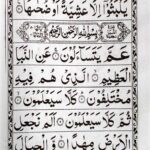 يَلْبَثُوْٓا اِلَّا عَشِيَّةً اَوْ ضُحٰىهَا
بِسْمِ اللّٰهِ الرَّحْمٰنِ الرَّحِيْمِ
عَمَّ يَتَسَآءَلُوْنَ عَنِ النَّبَاِ
الْعَظِيْمِ الَّذِيْ هُمْ فِيْهِ
مُخْتَلِفُوْنَ كَلَّا سَيَعْلَمُوْنَ
ثُمَّ كَلَّا سَيَعْلَمُوْنَ اَلَمْ نَجْعَلِ
الْاَرْضَ مِهٰدًا وَّالْجِبَالَ